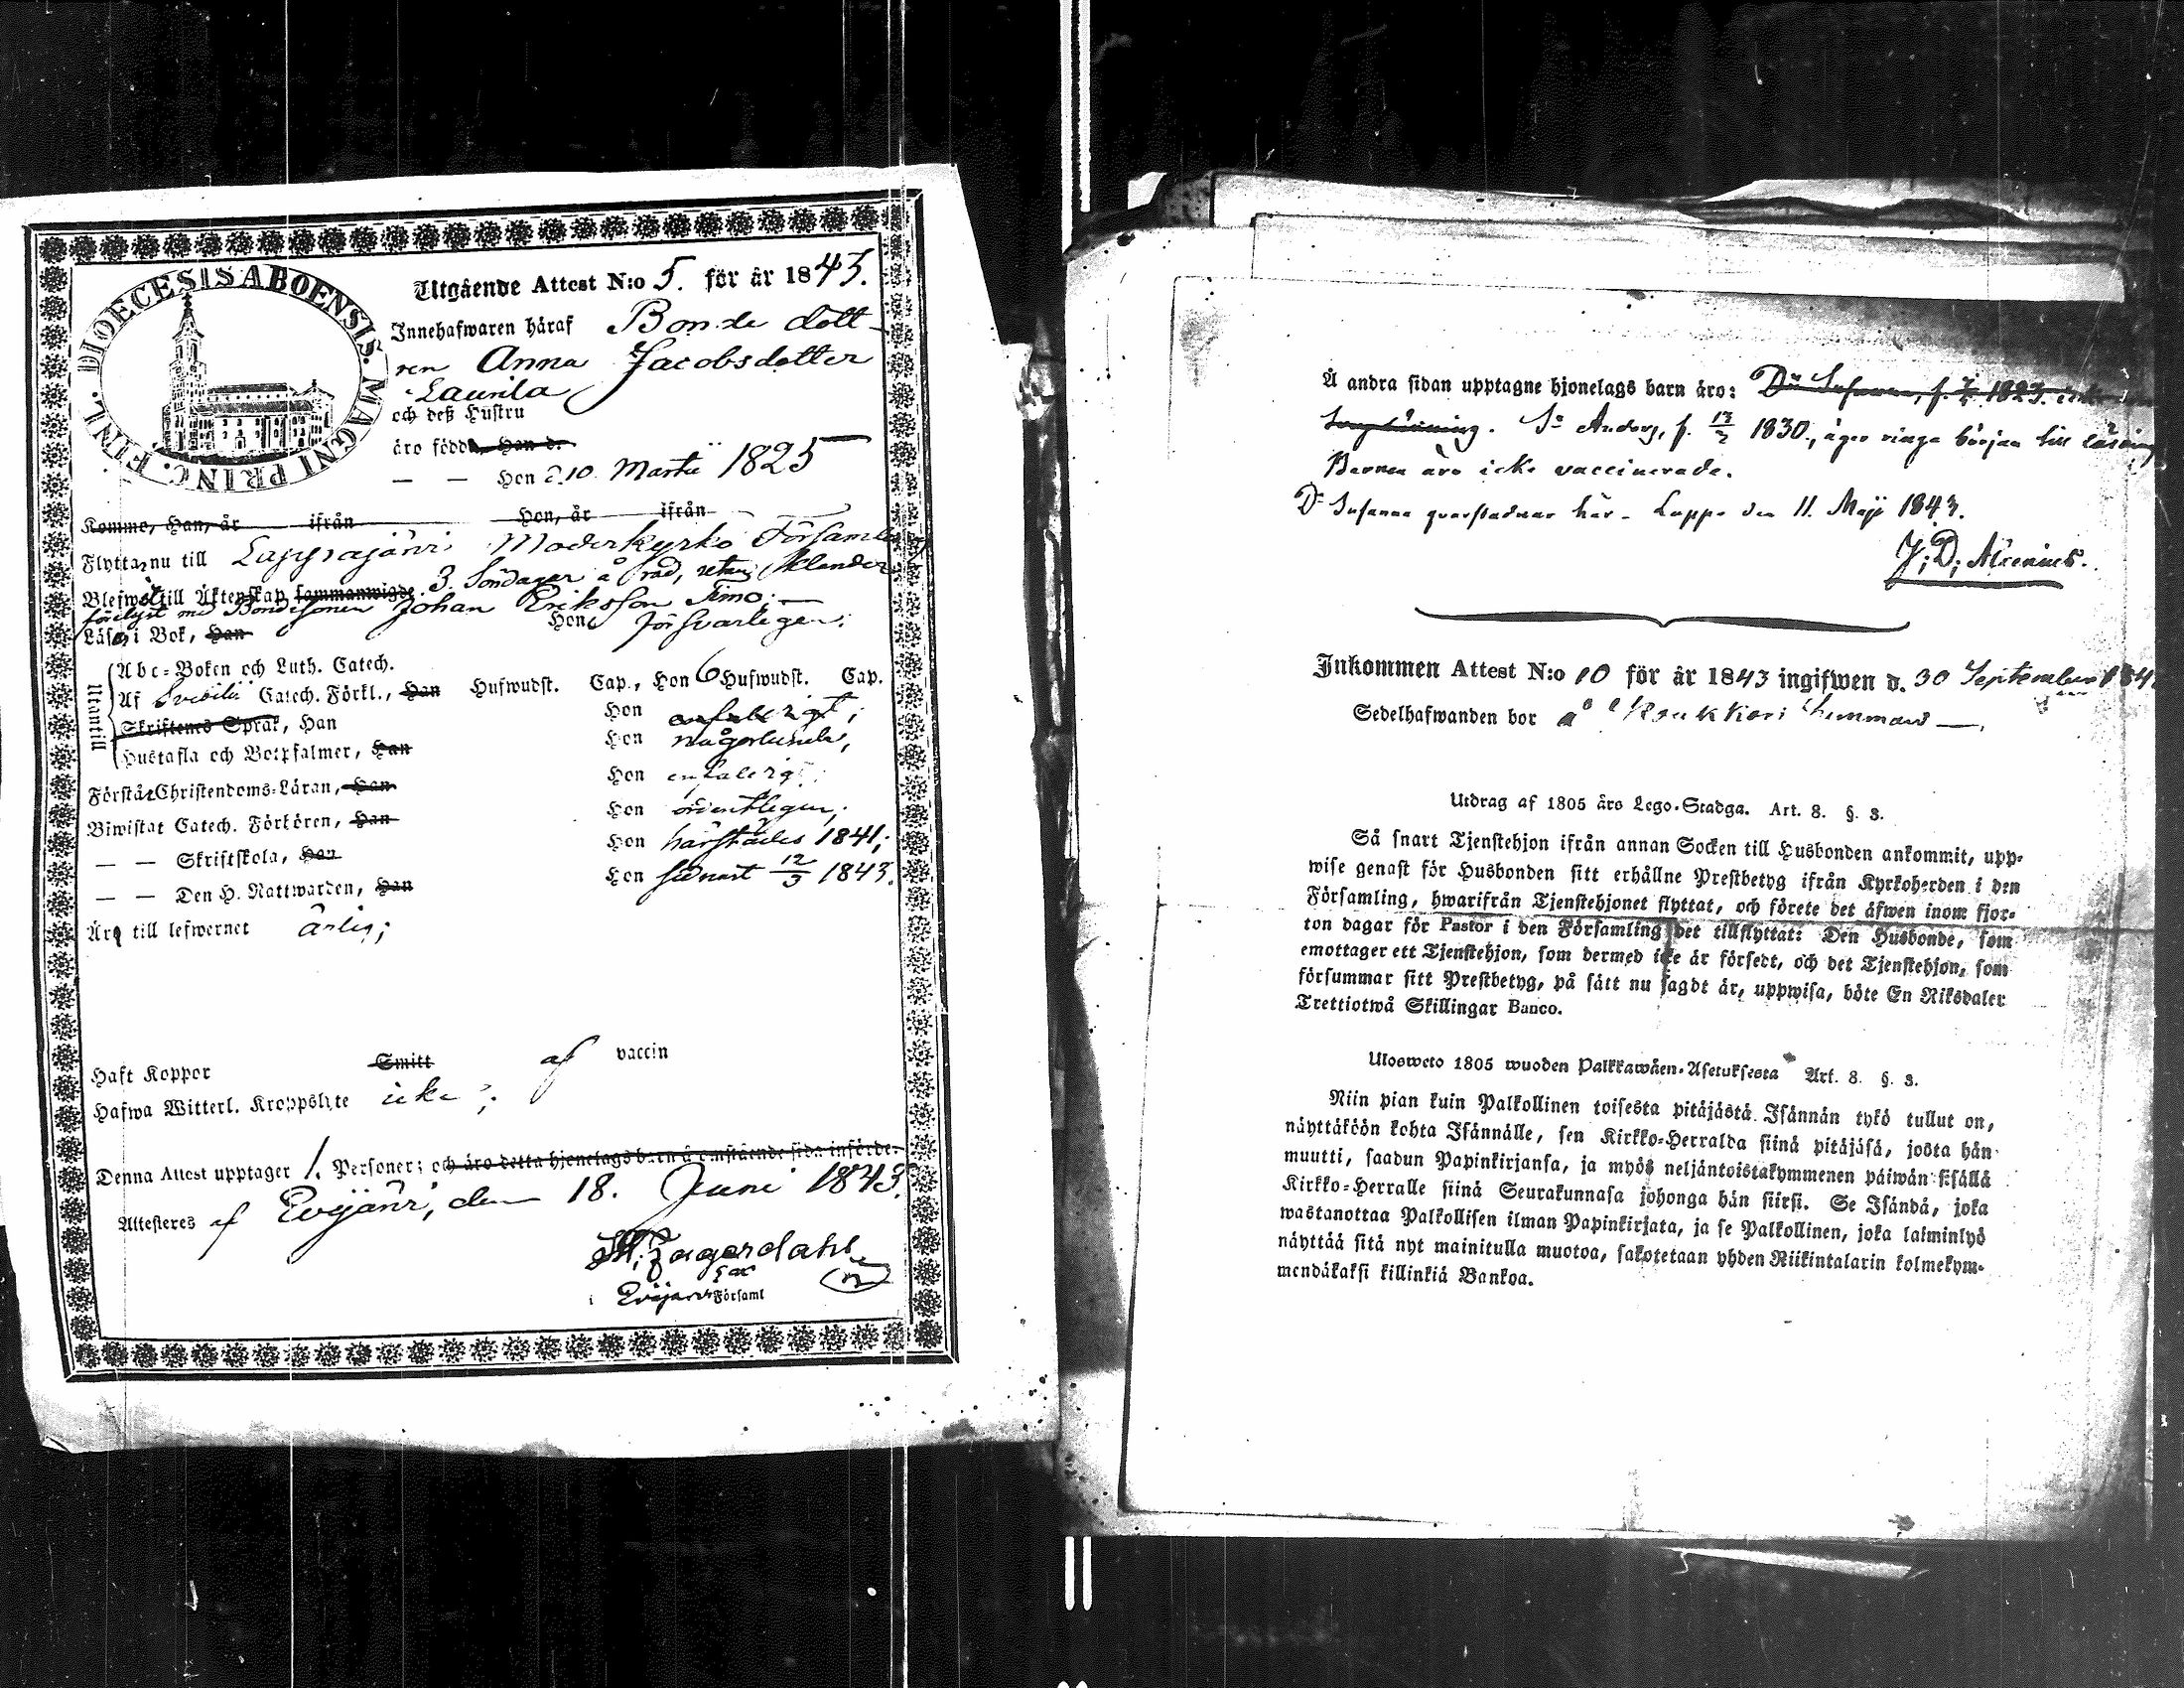 DIOECESIS ABOENSIS. MAGNI PRINC. FINL.
Utgående Attest N:o 5. för år 1843.
Innehafwaren häraf Bonde dott-
ren Anna Jacobsdotter
Laurila
och deß Hustru
äro född Han d.
— — Hon d. 10 Martii 1825
Komne, Han, år ifrån Hon, år ifrån
Flyttar nu till Lappajärvi Moderkyrko Församling
Blefwit till Äktenskap sammanwigde 3. Söndagar å rad, utan klander
förelyst med Bondesonen Johan Eriksson Timo;—
Läser i Bok, Han Hon försvarligen;
Utantill
Abc-Boken och Luth. Catech.
Af Svebilii Catech. Förkl., Han Hufwudst. Cap., Hon 6 Hufwudst. Cap.
Skriftenes Språk, Han Hon enfaldigt;
Hustafla och Botpsalmer, Han Hon någorlunda;
Förstår Christendoms-Läran, Han Hon enfaldigt;
Biwistat Catech. Förhören, Han Hon ordentligen;
— — Skriftskola, Han Hon härstädes 1841;
— — Den H. Nattwarden, Han Hon sednast 12/3 1843.
Är till lefwernet ärlig;
Haft Koppor Smitt af vaccin
Hafwa Witterl. Kroppslyte icke;
Denna Attest upptager 1. Personer; och äro detta hjonelags barn å omstående sida införde.
Attesteres af Evijärvi, den 18. Juni 1843.
Fagerdahl
i Evijärvi Församl
Å andra sidan upptagne hjonelags barn äro: Dr Susanna, f. 1823.
Sn Anders, f. 13/2 1830, äger ringa början till läsning
Barnen äro icke vaccinerade.
Dr Susanna qvarstadnar här. Lappo den 11. Maji 1843.
J. D. Alcenius.
Inkommen Attest N:o 10 för år 1843 ingifwen d. 30 September 184
Sedelhafwanden bor å
Utdrag af 1805 års Lego-Stadga. Art. 8. §. 3.
Så snart Tjenstehjon ifrån annan Socken till Husbonden ankommit, upp-
wise genast för Husbonden sitt erhållne Prestbetyg ifrån Kyrkoherden i den
Församling, hwarifrån Tjenstehjonet flyttat, och förete det äfwen inom fjor-
ton dagar för Pastor i den Församling det tillflyttat: Den Husbonde, som
emottager ett Tjenstehjon, som dermed icke är försedt, och det Tjenstehjon, som
försummar sitt Prestbetyg, på sätt nu sagdt är, uppwisa, böte En Riksdaler
Trettiotwå Skillingar Banco.
Ulosweto 1805 wuoden Palkkawäen-Asetuksesta Art. 8. §. 3.
Niin pian kuin Palkollinen toisesta pitäjästä Isännän tykö tullut on,
näyttäköön kohta Isännälle, sen Kirkko-Herralda siinä pitäjäsä, josta hän
muutti, saadun Papinkirjansa, ja myös neljäntoistakymmenen päiwän sisällä
Kirkko-Herralle siinä Seurakunnasa johonga hän siirsi. Se Isändä, joka
wastanottaa Palkollisen ilman Papinkirjata, ja se Palkollinen, joka laiminlyö
näyttää sitä nyt mainitulla muotoa, sakotetaan yhden Riikintalarin kolmekym-
mendäkaksi killinkiä Bankoa.